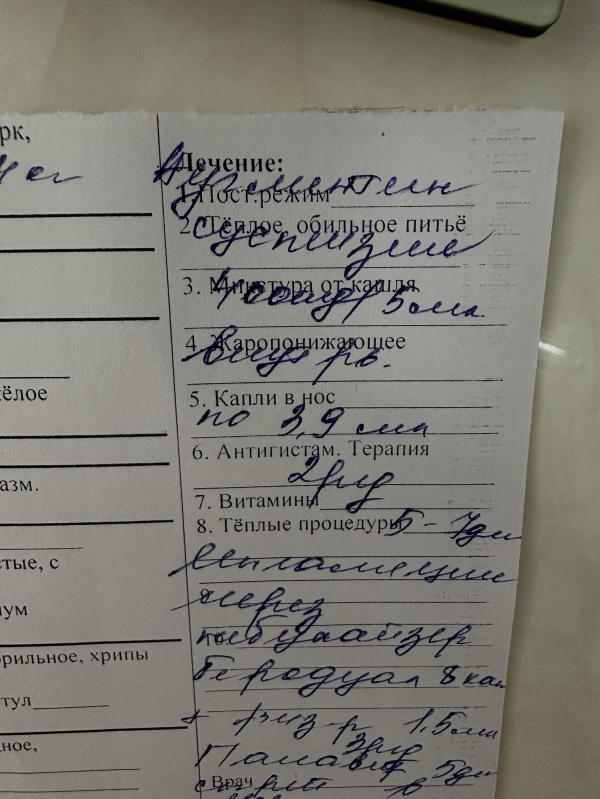 рк,
Лечение:
Аугментин
1. Пост.режим
2. Тёплое, обильное питьё
суспензия
3. Микстура от кашля
5 мл
4. Жаропонижающее
внутрь.
ёлое
5. Капли в нос
по 3,9 мл
6. Антигистам. Терапия
2 р/д
азм.
7. Витамины
8. Тёплые процедуры
5-7 дн
тые, с
Ингаляции
9.
через
ум
10.
небулайзер
рильное, хрипы
Беродуал 8 кап
тул
+ физ-р 1,5 мл
3 р/д
ное,
5 дн
Врач
спрей в